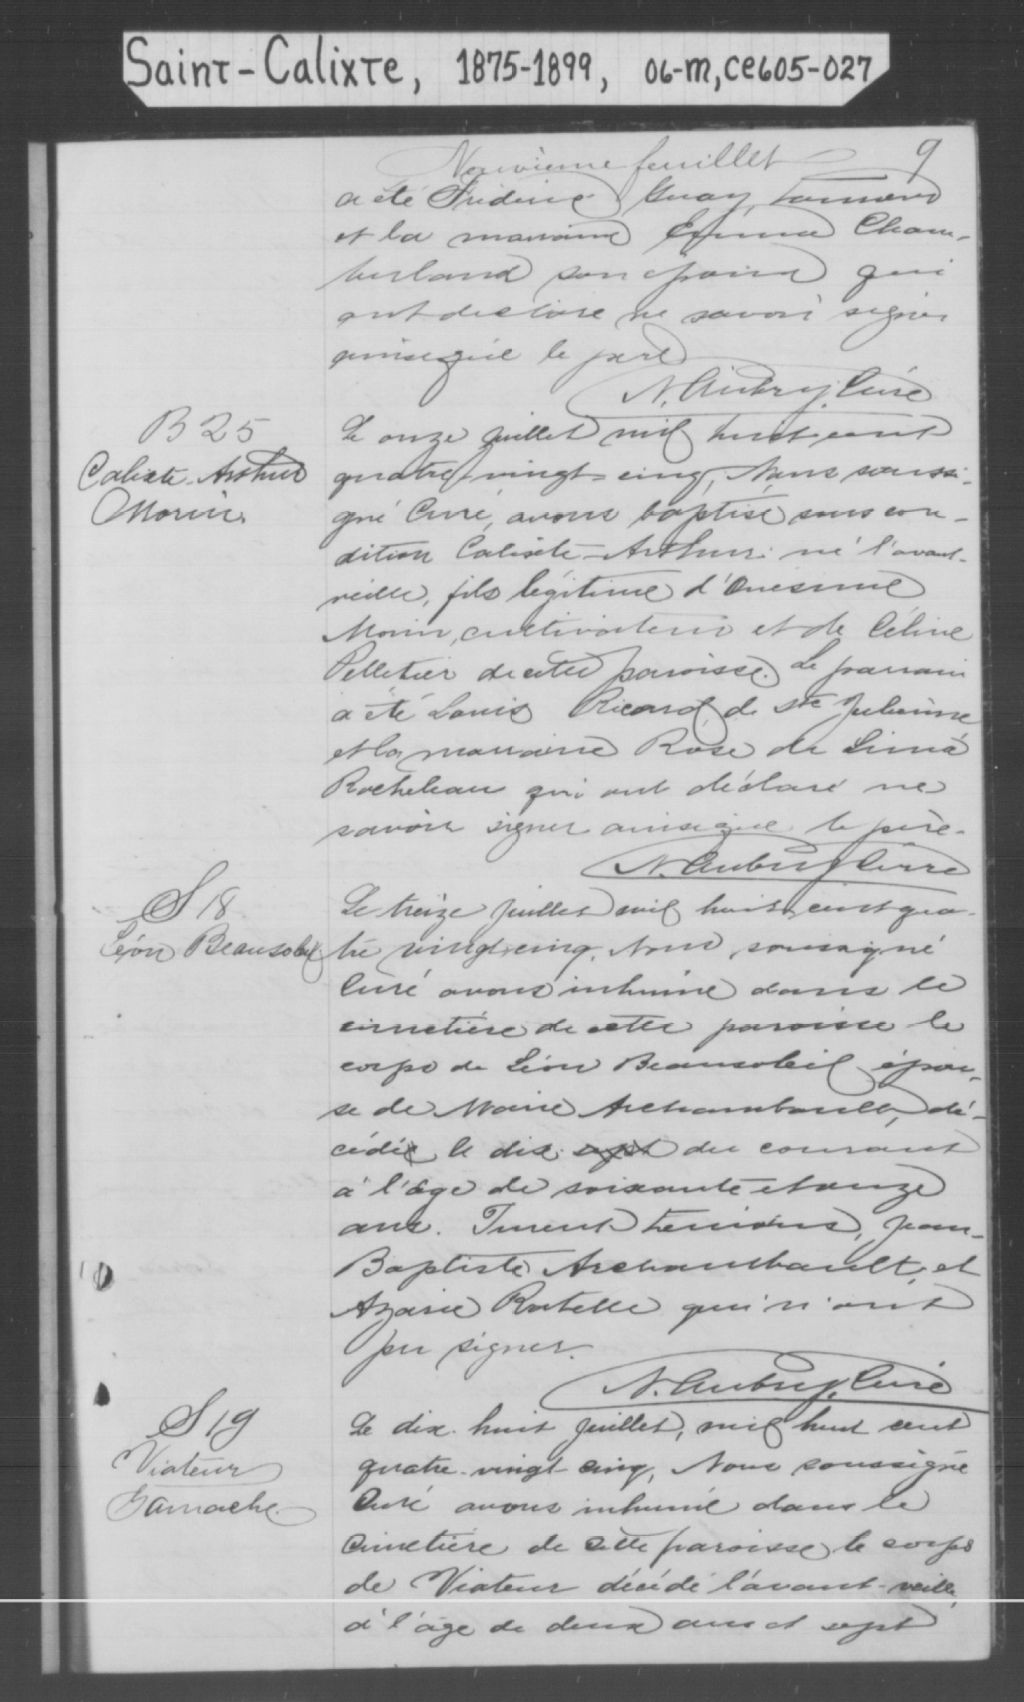 Saint-Calixte, 1875-1899, 06-M, CE605-027
Neuvième feuillet 9
a été Frédéric Guay, tanneur
et la marraine Emma Cham-
berland son épouse qui
ont déclaré ne savoir signer
ainsi que le père
N. Aubry, Curé
B 25
Calixte-Arthur
Morin
Le onze juillet mil huit cent
quatre vingt-cinq, Nous soussi-
gné Curé, avons baptisé sous con-
dition Calixte-Arthur né l'avant-
veille, fils légitime d'Onésime
Morin, cultivateur et de Céline
Pelletier de cette paroisse. Le parrain
a été Louis Ricard, de Ste Julienne
et la marraine Rose de Lima
Rocheleau qui ont déclaré ne
savoir signer ainsi que le père.
N. Aubry Curé
S 18
Léon Beausoleil
Le treize juillet mil huit cent qua-
tre vingt cinq, Nous, soussigné
Curé avons inhumé dans le
cimetière de cette paroisse le
corps de Léon Beausoleil, épou-
se de Marie Archambault, dé-
cédé le dix sept du courant
à l'âge de soixante et onze
ans. Furent témoins, Jean-
Baptiste Archambault, et
Azarie Ratelle qui n'ont
pu signer.
N. Aubry, Curé
S 19
Viateur
Gamache
Le dix-huit juillet, mil huit cent
quatre-vingt cinq, Nous soussigné
Curé avons inhumé dans le
cimetière de cette paroisse, le corps
de Viateur décédé l'avant-veille,
à l'âge de deux ans et sept